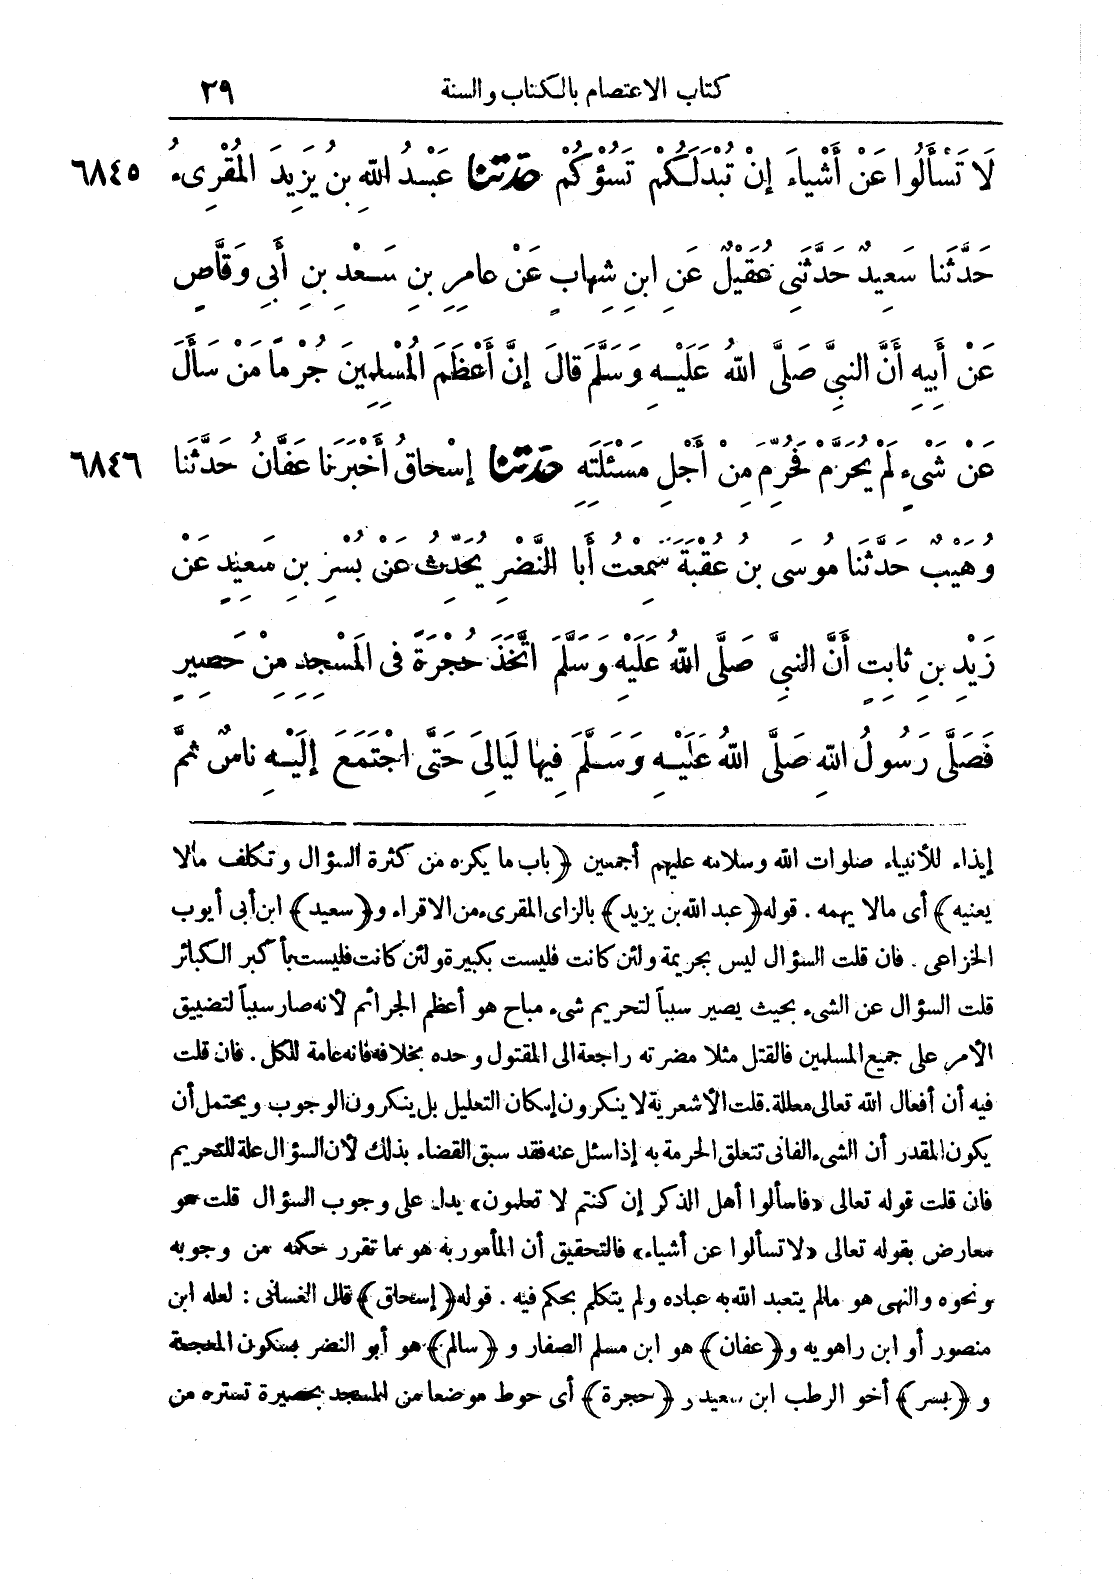 كتاب الاعتصام بالكتاب والسنة ٣٩
لَا تَسْأَلُوا عَنْ أَشْيَاءَ إِنْ تُبْدَلَكُمْ تَسُؤْكُمْ حدثنا عَبْدُ اللهِ بنُ يَزِيدَ المُقْرِىءُ ٦٨٤٥
حَدَّثَنا سَعِيدٌ حَدَّثَنِى عُقَيْلٌ عَنِ ابنِ شِهابٍ عَنْ عامِرِ بنِ سَعْدِ بنِ أَبِى وَقَّاصٍ
عَنْ أَبِيهِ أَنَّ النبيَّ صَلَّى اللهُ عَلَيْهِ وَسَلَّمَ قالَ إنَّ أَعْظَمَ المُسْلِمِينَ جُرْمًا مَنْ سَأَلَ
عَنْ شَىْءٍ لَمْ يُحَرَّمْ فَحُرِّمَ مِنْ أَجْلِ مَسْئَلَتِهِ حدثنا إسْحاقُ أَخْبَرَنا عَفَّانُ حَدَّثَنا ٦٨٤٦
وُهَيْبٌ حَدَّثَنا مُوسَى بنُ عُقْبَةَ سَمِعْتُ أَبا النَّضْرِ يُحَدِّثُ عَنْ بُسْرِ بنِ سَعِيدٍ عَنْ
زَيْدِ بنِ ثابِتٍ أَنَّ النبيَّ صَلَّى اللهُ عَلَيْهِ وَسَلَّمَ اتَّخَذَ حُجْرَةً فى المَسْجِدِ مِنْ حَصِيرٍ
فَصَلَّى رَسُولُ اللهِ صَلَّى اللهُ عَلَيْهِ وَسَلَّمَ فِيها لَيَالِىَ حَتَّى اجْتَمَعَ إلَيْهِ ناسٌ ثمَّ
إيذاء للأنبياء صلوات الله وسلامه عليهم أجمعين ﴿باب ما يكره من كثرة السؤال وتكلف مالا
يعنيه﴾ أى مالا يهمه . قوله ﴿عبد الله بن يزيد﴾ بالزاى المقرىء من الاقراء و﴿سعيد﴾ ابن أبى أيوب
الخزاعى . فان قلت السؤال ليس بجريمة ولئن كانت فليست بكبيرة ولئن كانت فليست بأكبر الكبائر
قلت السؤال عن الشىء بحيث يصير سبباً لتحريم شىء مباح هو أعظم الجرائم لأنه صار سبباً لتضييق
الأمر على جميع المسلمين فالقتل مثلا مضرته راجعة الى المقتول وحده بخلافه فانه عامة للكل . فان قلت
فيه أن أفعال الله تعالى معللة. قلت الأشعرية لا ينكرون إمكان التعليل بل ينكرون الوجوب ويحتمل أن
يكون المقدر أن الشىء الفانى تتعلق الحرمة به إذا سئل عنه فقد سبق القضاء بذلك لأن السؤال علة للتحريم
فان قلت قوله تعالى «فاسألوا أهل الذكر إن كنتم لا تعلمون» يدل على وجوب السؤال قلت هو
معارض بقوله تعالى «لا تسألوا عن أشياء» فالتحقيق أن المأمور به هو مما تقرر حكمه من وجوبه
ونحوه والنهى هو مالم يتعبد الله به عباده ولم يتكلم بحكم فيه . قوله ﴿إسحاق﴾ قال الغسانى : لعله ابن
منصور أو ابن راهويه و﴿عفان﴾ هو ابن مسلم الصفار و ﴿سالم﴾ هو أبو النضر بسكون المعجمة
و ﴿بسر﴾ أخو الرطب ابن سعيد و ﴿حجرة﴾ أى حوط موضعا من المسجد بحصيرة تستره من